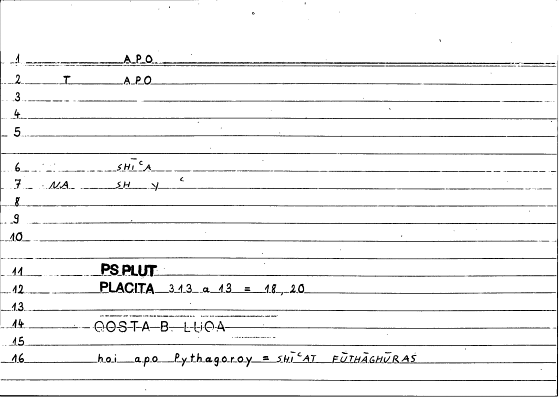 1 A.P.O.
2 T A.P.O
3
4
5
6 SHĪᶜA
7 N.A SH Y ᶜ
8
9
10
11 PS.PLUT
12 PLACITA 313 a 13 = 18,20
13
14 QOSTA B. LUQA
15
16 hoi apo Pythagoroy = SHĪᶜAT FŪTHĀGHŪRAS